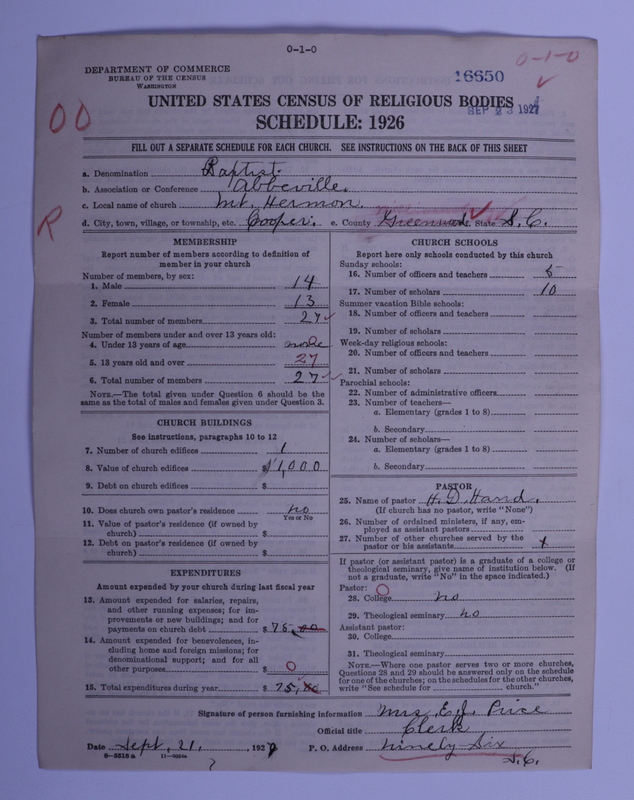 0-1-0
0-1-0
DEPARTMENT OF COMMERCE
BUREAU OF THE CENSUS
WASHINGTON
16650
UNITED STATES CENSUS OF RELIGIOUS BODIES
SEP 23 1927
SCHEDULE: 1926
00
FILL OUT A SEPARATE SCHEDULE FOR EACH CHURCH. SEE INSTRUCTIONS ON THE BACK OF THIS SHEET
a. Denomination Baptist
b. Association or Conference Abbeville.
c. Local name of church Mt. Hermon
R
d. City, town, village, or township, etc. Cooper. e. County Greenwood f. State S. C.
MEMBERSHIP
Report number of members according to definition of
member in your church
Number of members, by sex:
1. Male 14
2. Female 13
3. Total number of members 27
Number of members under and over 13 years old:
4. Under 13 years of age none
5. 13 years old and over 27
6. Total number of members 27
NOTE.—The total given under Question 6 should be the
same as the total of males and females given under Question 3.
CHURCH BUILDINGS
See instructions, paragraphs 10 to 12
7. Number of church edifices 1
8. Value of church edifices $1,000
9. Debt on church edifices $
10. Does church own pastor's residence no
Yes or No
11. Value of pastor's residence (if owned by
church) $
12. Debt on pastor's residence (if owned by
church) $
EXPENDITURES
Amount expended by your church during last fiscal year
13. Amount expended for salaries, repairs,
and other running expenses; for im-
provements or new buildings; and for
payments on church debt $ 75.00
14. Amount expended for benevolences, in-
cluding home and foreign missions; for
denominational support; and for all
other purposes $ 0
15. Total expenditures during year $ 75.
CHURCH SCHOOLS
Report here only schools conducted by this church
Sunday schools:
16. Number of officers and teachers 5
17. Number of scholars 10
Summer vacation Bible schools:
18. Number of officers and teachers
19. Number of scholars
Week-day religious schools:
20. Number of officers and teachers
21. Number of scholars
Parochial schools:
22. Number of administrative officers
23. Number of teachers—
a. Elementary (grades 1 to 8)
b. Secondary
24. Number of scholars—
a. Elementary (grades 1 to 8)
b. Secondary
PASTOR
25. Name of pastor H. D. Hand.
(If church has no pastor, write "None")
26. Number of ordained ministers, if any, em-
ployed as assistant pastors
27. Number of other churches served by the
pastor or his assistants
If pastor (or assistant pastor) is a graduate of a college or
theological seminary, give name of institution below. (If
not a graduate, write "No" in the space indicated.)
Pastor: 0
28. College no
29. Theological seminary no
Assistant pastor:
30. College
31. Theological seminary
NOTE.—Where one pastor serves two or more churches,
Questions 28 and 29 should be answered only on the schedule
for one of the churches; on the schedules for the other churches,
write "See schedule for church."
Signature of person furnishing information Mrs E. J. Price
Official title Clerk
Date Sept. 21, 1927 P. O. Address Ninety Six
S. C.
8-5518a 11-9054a